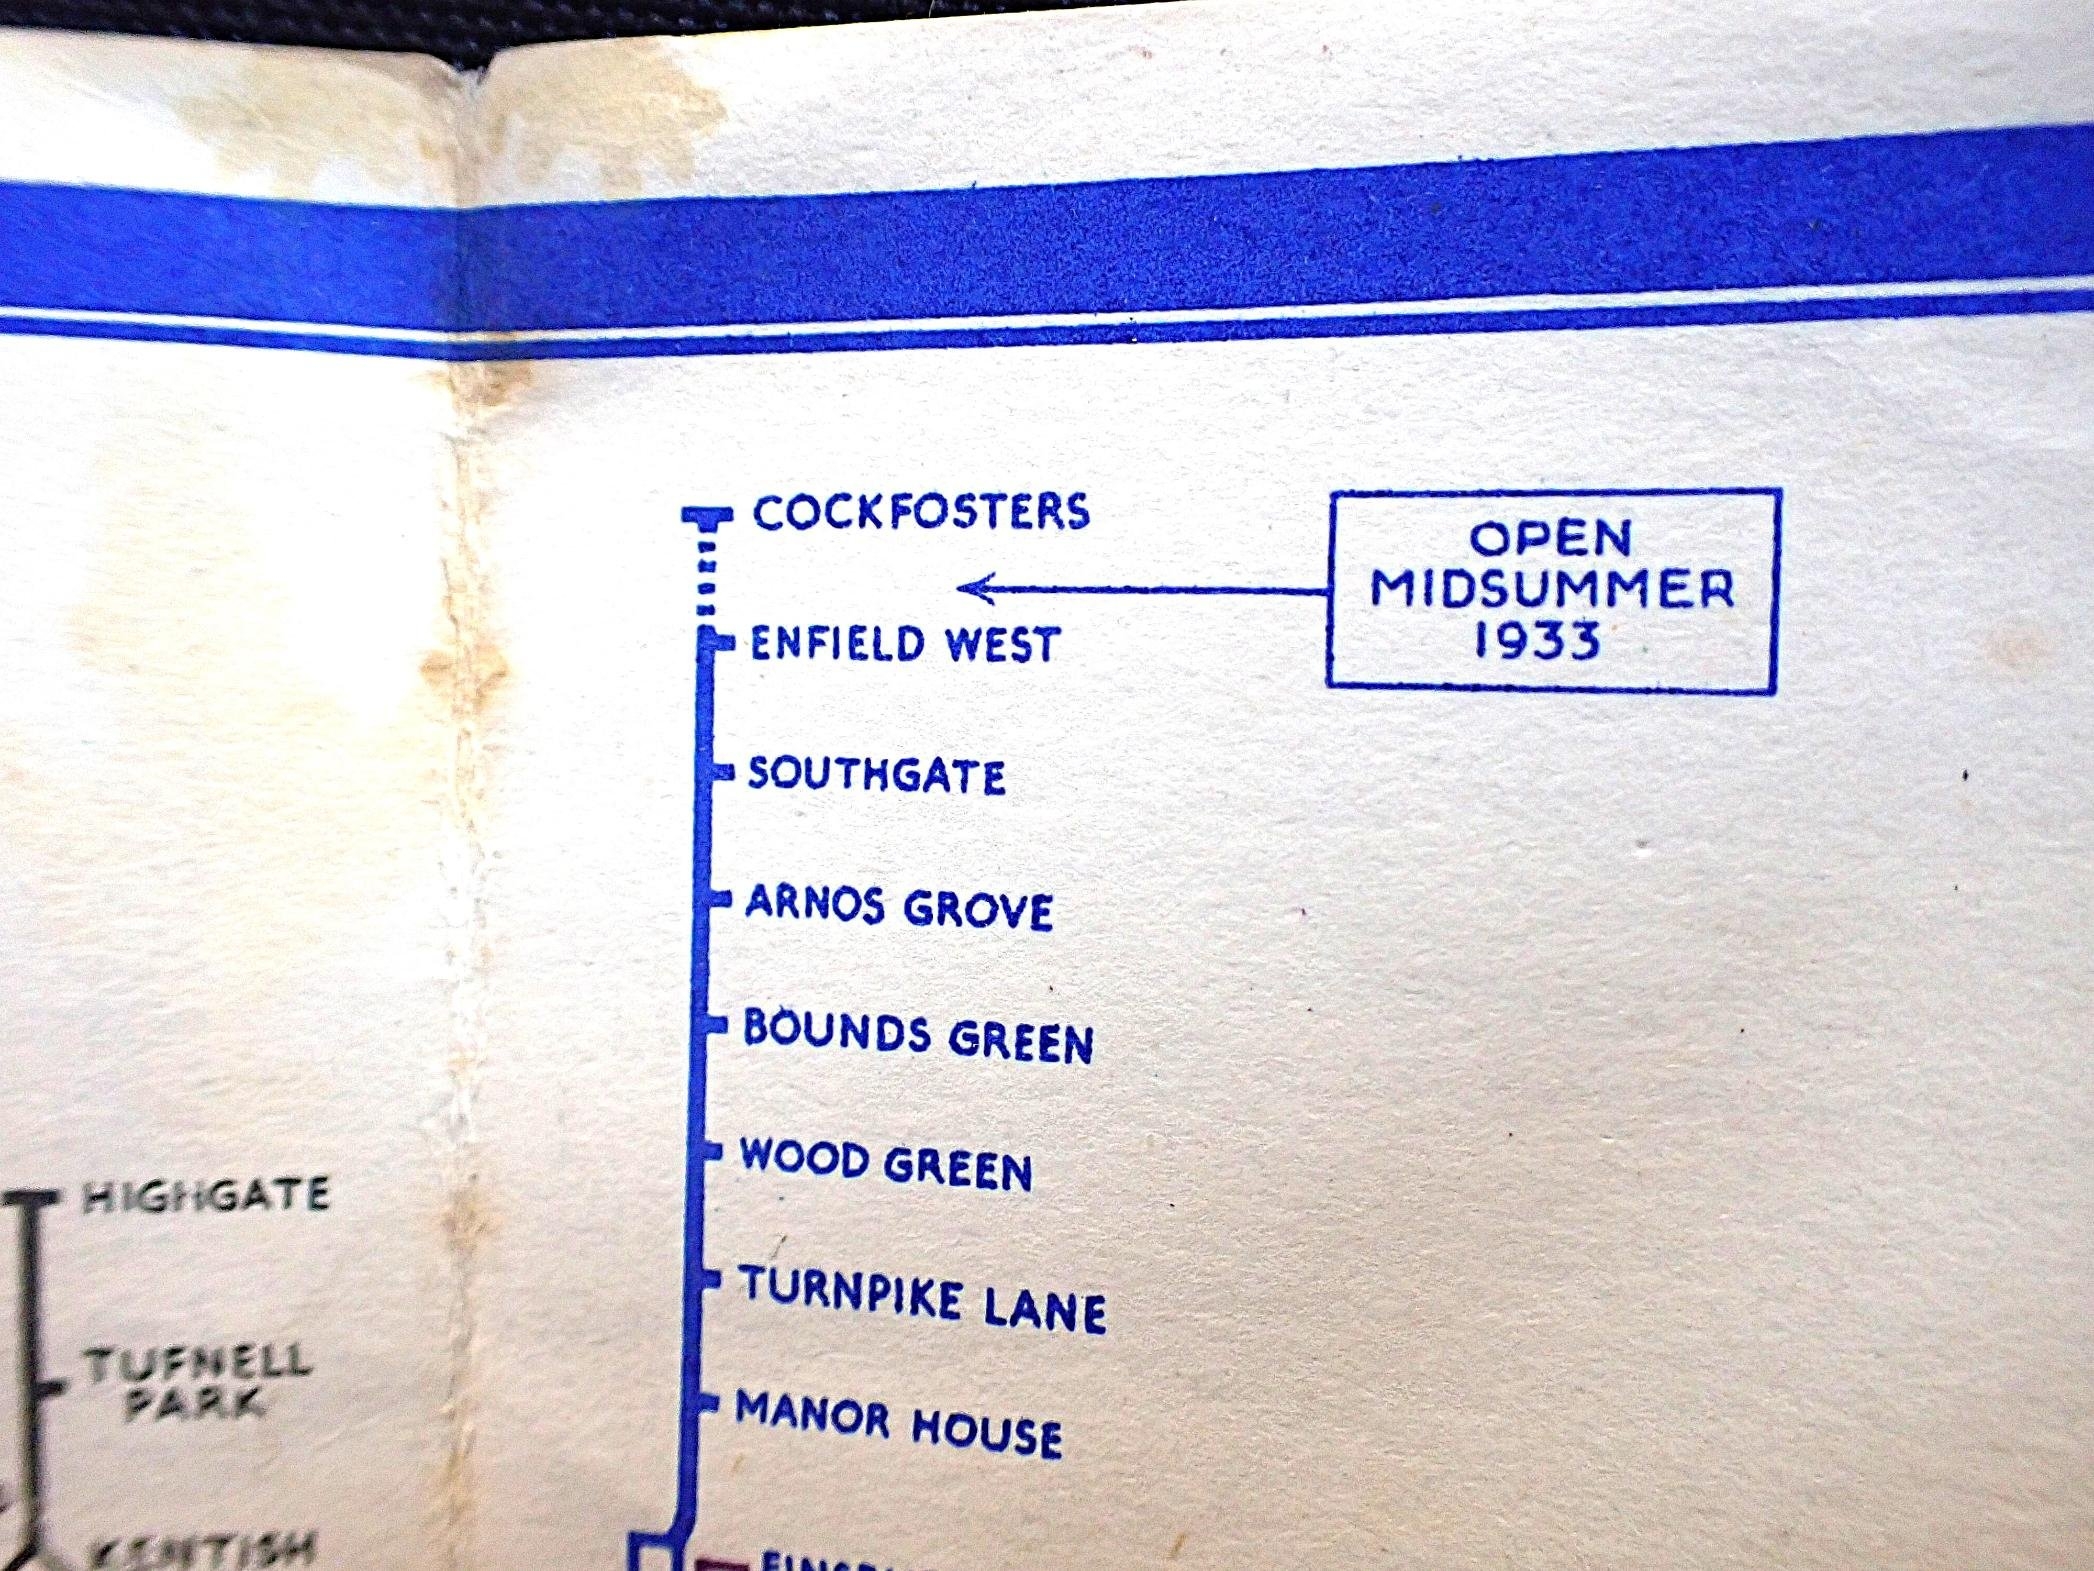 COCKFOSTERS
OPEN
MIDSUMMER
1933
ENFIELD WEST
SOUTHGATE
ARNOS GROVE
BOUNDS GREEN
WOOD GREEN
TURNPIKE LANE
MANOR HOUSE
HIGHGATE
TUFNELL
PARK
KENTISH